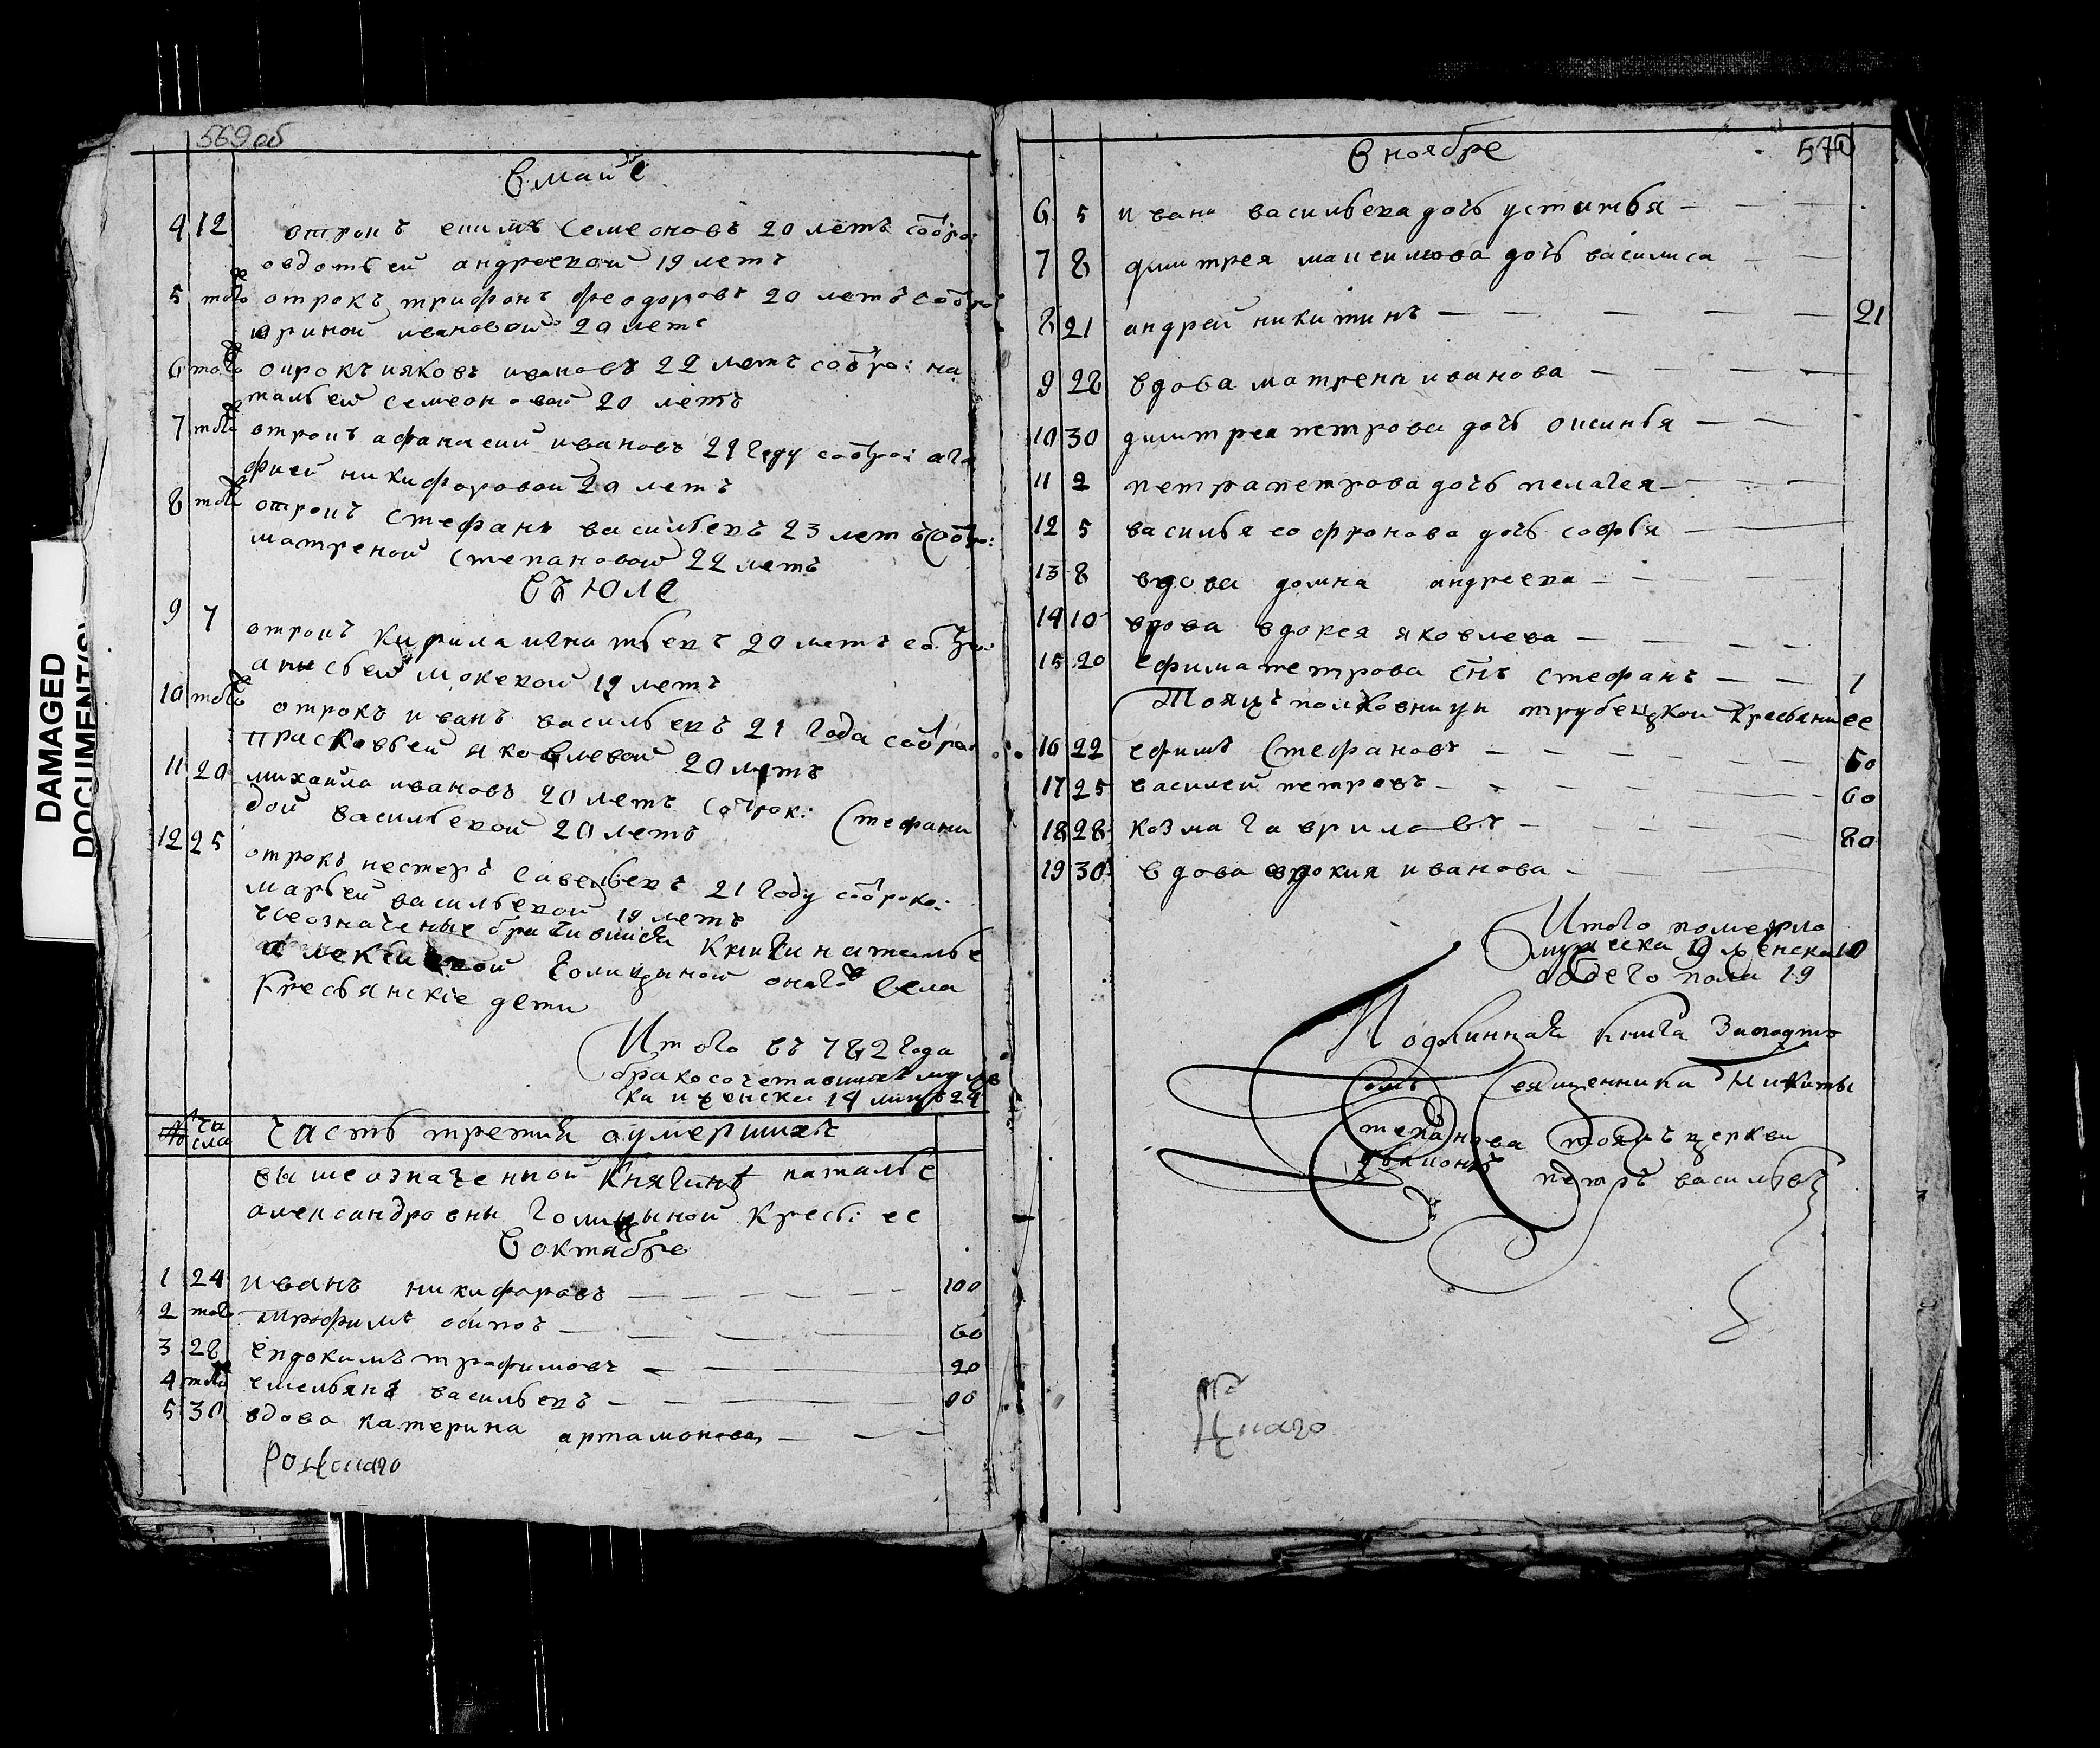 569 об
в маие
4 12 отрокъ еким Семеоновъ 20 летъ собро:
овдотьей андреевой 19 летъ
5 того отрокъ трифонъ феодоровъ 20 летъ собро
ириной ивановой 20 летъ
6 того отрокъ ияковъ ивановъ 22 летъ собро: на
тальей семеоновой 20 летъ
7 того отрокъ афанасий ивановъ 21 году собро: ага
фией никифоровой 20 летъ
8 того отрокъ стефанъ васильевъ 23 летъ собро:
матреной степановой 22 летъ
въ Июле
9 7 отрокъ кирила игнатьевъ 20 летъ собро:
анисьей мокевой 19 летъ
10 того отрокъ иванъ васильевъ 21 года собро:
прасковьей яковлевой 20 летъ
11 20 михайла ивановъ 20 летъ соброк: стефани
дой васильевой 20 летъ
12 25 отрокъ нестеръ савельевъ 21 году соброко:
марьей васильевой 19 летъ
княгини наталье
голицыной онаго села
кресьянские дети
Итого въ 782 года
бракосочетавшихъ муже
ска и женска 14 24
№ числа часть третия о умершихъ
вышеозначенной княгинѣ наталье
александровны голицыной кресь: ее
в октябре
1 24 иванъ никифоровъ 100
2 того трофимъ осиповъ 60
3 28 евдокимъ трафимовъ 20
4 того емельянъ васильевъ
5 30 вдова катерина артамонова
в ноябре
570
6 5 ивана васильева дочь устинья
7 8 димитрея максимова дочь василиса
8 21 андрей никитинъ 21
9 28 вдова матрена иванова
10 30 димитрея петрова дочь оксинья
11 2 петра петрова дочь пелагея
12 5 василья софронова дочь софья
13 8 вдова домна андреева
14 10 вдова вдокея яковлева
15 20 ефима петрова снъ стефанъ 1
полковницы трубецкой кресьяни ее
16 22 ефимъ Стефановъ 50
17 25 василей петровъ 60
18 28 козма гавриловъ 80
19 30 вдова вдокия иванова
Итого померло
мужеска 9 женска 10
обоего пола 19
Подлинная книга
священника Никиты
степанова тояжъ церкви
дьяконъ петръ васильевъ